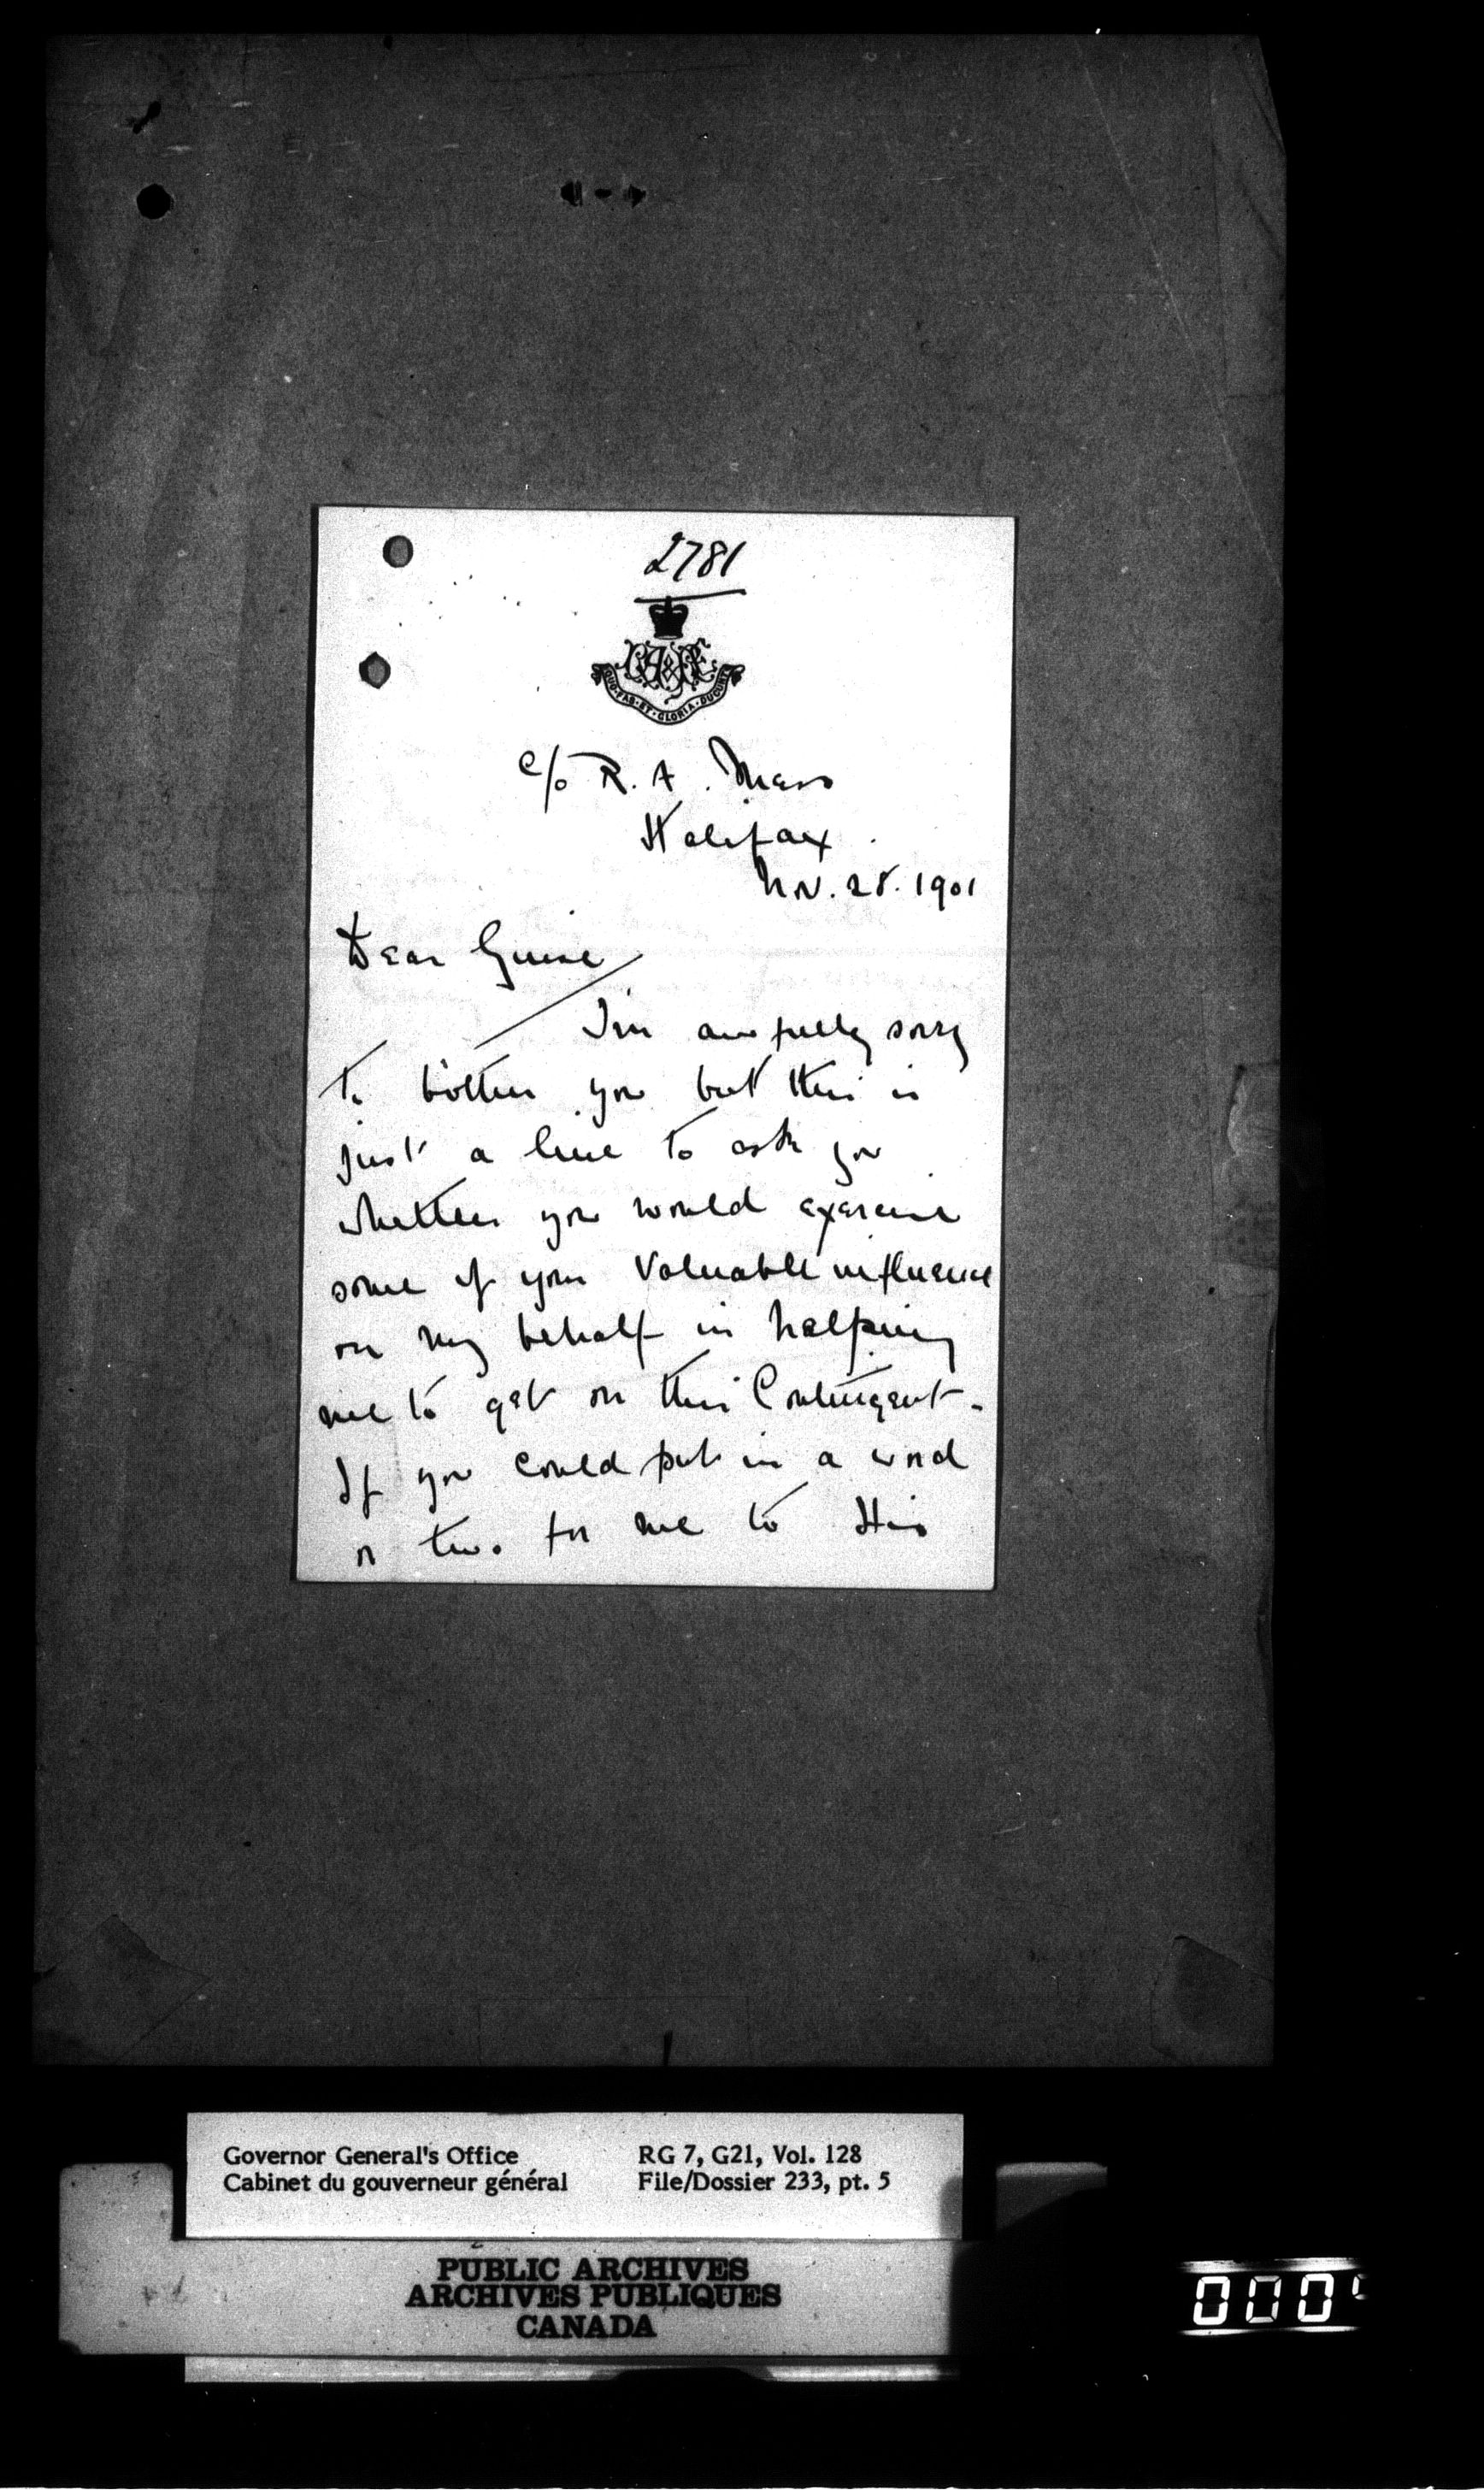 2781
QUO·FAS·ET·GLORIA·DUCUNT
c/o R. A. Mess
Halifax
Nov. 28. 1901
Dear Guise
I'm awfully sorry
to bother you but this is
just a line to ask you
whether you would exercise
some of your valuable influence
on my behalf in helping
me to get on this Contingent.
If you could put in a word
or two for me to His
Governor General's Office RG 7, G21, Vol. 128
Cabinet du gouverneur général File/Dossier 233, pt. 5
PUBLIC ARCHIVES
ARCHIVES PUBLIQUES
CANADA
000